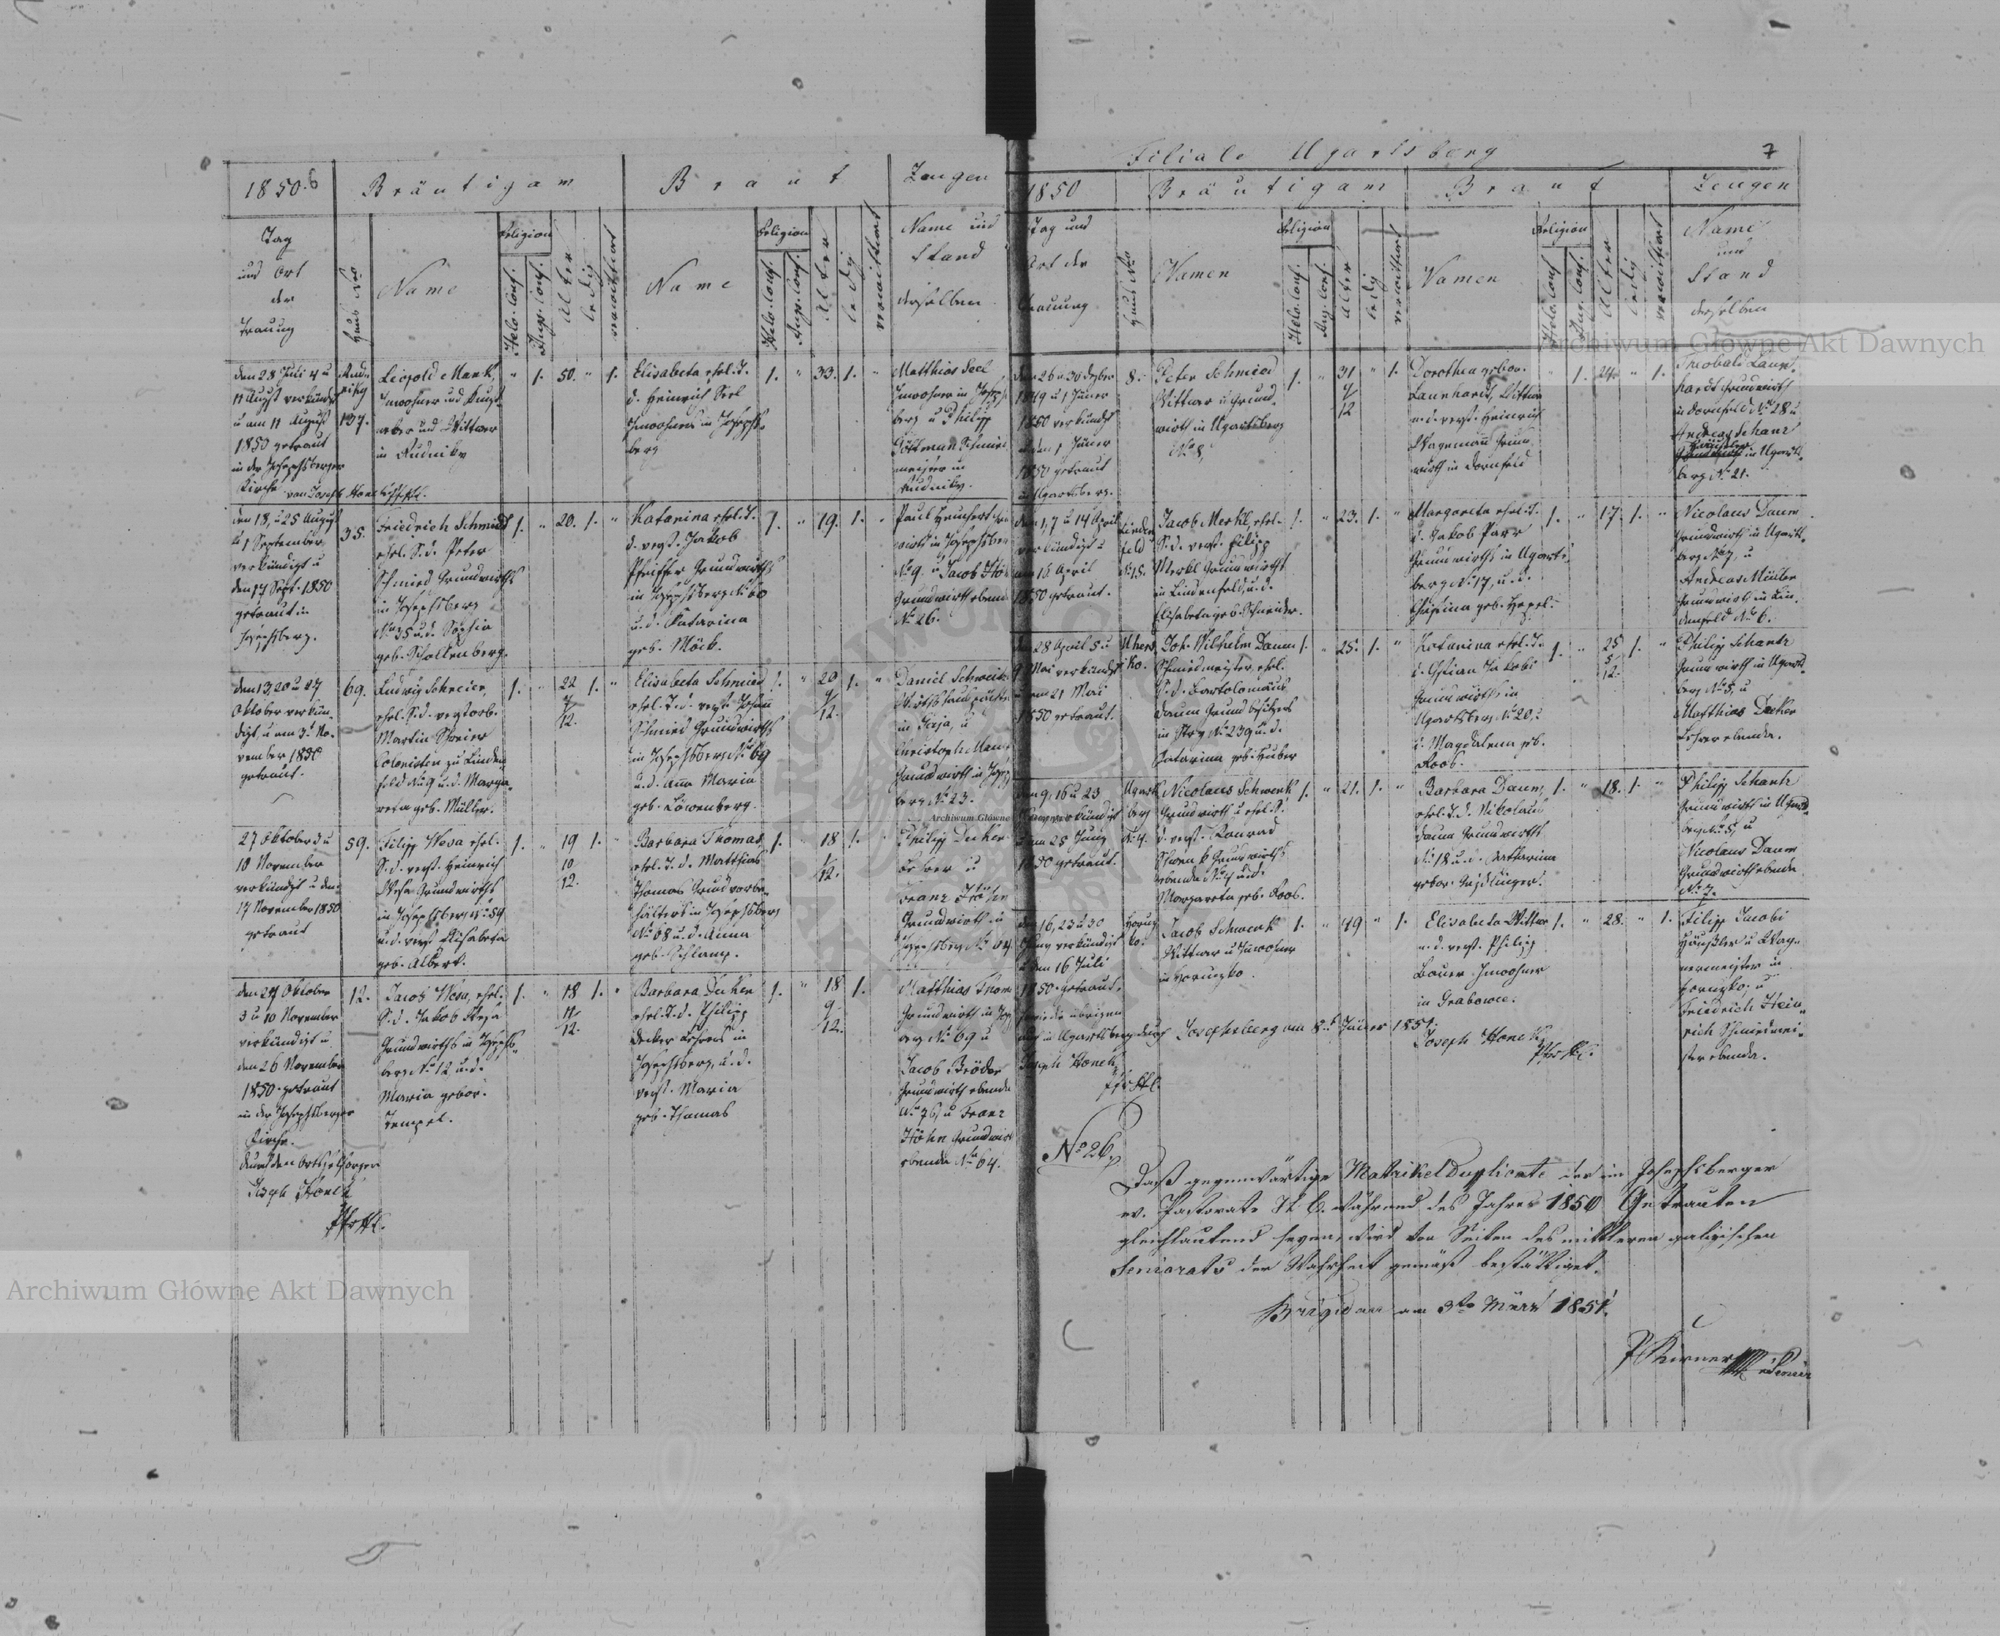 1850. 6
Bräutigam
Braut
Zeugen
Tag
und Ort
der
Trauung
Haus No.
Name
Religion
Helv. Conf.
Augs. Conf.
Alter
ledig
verwittwet
Name
Religion
Helv. Conf.
Augs. Conf.
Alter
ledig
verwittwet
Name und
Stand
derselben
den 28 Juli 4 u
11 August verkündigt
u am 11 August
1850 getraut
in der Josephsberger
Kirche von Joseph Honel
Rud-
niky
137.
Leopold Mank,
Inwohner und
und Wittwer
in Rudniky
" 1. 50. " 1.
Elisabeta ehel. T.
d. Heinrich Seel
Inwohners in Josephs-
berg
1. " 33. 1. "
Matthias Seel
Inwohner in Josephs-
berg u Philipp
Gottmann Schmied-
meister in
Rudniky.
den 18, u 25 August
u 1 September
verkündigt u
den 17 Sept. 1850
getraut in
Josephsberg.
35.
Friedrich Schmied
ehel. S. d. Peter
Schmied Grundwirths
in Josephsberg
No 35 u. d. Sophia
geb. Schallenberg.
1. " 20. 1. "
Katarina ehel. T.
d. verst. Jakob
Pfeiffer Grundwirths
in Josephsberg No 60
u. d. Katarina
geb. Möck.
1. " 19. 1. "
Paul
wirth in Josephsberg
No 9. u Jacob
Grundwirth ebenda
No 26.
den 13, 20 u 27
Oktober verkün-
digt u am 3t No-
vember 1850
getraut.
69.
Ludwig Schreier,
ehel. S. d. verstorb.
Martin Schreier
Colonisten zu Linden-
feld No 9 u. d. Marga-
reta geb. Müller.
1. " 22 1. "
12.
Elisabeta Schmied
ehel. T. d. verst. Johann
Schmied Grundwirths
in Josephsberg No 69
u. d. Anna Maria
geb. Löwenberg.
1. " 20 1. "
12.
Daniel Schweitz
in Gaja, u
Christoph Man
Grundwirth in Josephs-
berg No 23.
27 Oktober 3 u
10 November
verkündigt u den
17 November 1850
getraut
59.
Filipp Wesa ehel.
S. d. verst. Heinrich
Wesa Grundwirths
in Josephsberg No 59
u. d. verst. Elisabeta
geb. Albert.
1. " 19 1. "
10
12.
Barbara Thomas
ehel. T. d. Matthias
Thomas Grundvorbe-
hälters in Josephsberg
No 68 u. d. Anna
geb. Schlamp.
1. " 18 1. "
12.
Philipp Decker
Lehrer u
Franz Höhn
Grundwirth in
Josephsberg No 64
den 27 Oktober
3 u 10 November
verkündigt u
den 26 November
1850 getraut
in der Josephsberger
Kirche.
durch den Ortsseelsorger
Joseph Honel
12.
Jacob Wesa, ehel.
S. d. Jakob Wesa
Grundwirths in Josephs-
berg No 12 u. d.
Maria gebor.
Tempel.
1. " 18 1. "
11
12.
Barbara Decker
ehel. T. d. Philipp
Decker Lehrers in
Josephsberg, u. d.
verst. Maria
geb. Thomas
1. " 18 1.
9
12.
Matthias Thomas
Grundwirth in Josephs-
berg No 69 u
Jacob Bröder
Grundwirth ebenda
No 76, u Franz
Höhn Grundwirth
ebenda No 64.
Filiale Ugartsberg
7
1850
Bräutigam
Braut
Zeugen
Tag und
Ort der
Trauung
Haus No
Namen
Religion
Helv. Conf.
Aug. Conf.
Alter
ledig
verwittwet
Namen
Religion
Helv. Conf.
Aug. Conf.
Alter
ledig
verwittwet
Name
und
Stand
derselben
den 26 u 30 Dezber
1849 u 1 Jäner
1850 verkündigt
u den 1 Jäner
1850 getraut
in Ugartsberg.
8.
Peter Schmied
Wittwer u Grund-
wirth in Ugartsberg
No 8,
1. " 31 " 1.
12
Dorothea gebor.
Launhardt, Wittwe
n. d. verst. Heinrich
Wagemann Grund-
wirth in Dornfeld
" 1. 24. " 1.
Theobald Laun-
hardt Grundwirth
in Dornfeld No 28 u
Andreas Schanz
in Ugarts-
berg No 21.
den 1, 7 u 14 April
verkündigt u
am 16 April
1850 getraut.
Linden-
feld
No 15.
Jacob Merkl, ehel.
S. d. verst. Filipp
Merkl Grundwirths
in Lindenfeld, u. d.
Elisabeta geb. Schneider.
1. " 23. 1. "
Margareta ehel. T.
d. Jakob Parr
Grundwirths in Ugarts-
berg No 17, u. d.
Christina geb. Hepel.
1. " 17. 1. "
Nicolaus Daum
Grundwirth in Ugarts-
berg No 7, u
Andreas Müller
Grundwirth in Lin-
denfeld No 6.
den 28 April 5 u
9 Mai verkündigt
u am 21 Mai
1850 getraut.
Joh. Wilhelm Daum
Schmiedmeister, ehel.
S. d. Bartolomäus
Daum Grundbesitzers
in Stry No 239 u. d.
Katarina geb. Huber
1. " 25. 1. "
Katarina ehel. T.
d. Christian Jakobi
Grundwirths in
Ugartsberg No 20,
u. Magdalena geb.
Koob.
1. " 25 1. "
5
12.
Philipp Schantz
Grundwirth in Ugarts-
berg No 5, u
Matthias Decker
Lehrer ebenda.
den 9, 16 u 23
Juny verkündigt
u am 25 Juny
1850 getraut.
Ugarts-
berg
No 4.
Nicolaus Schwenk
Grundwirth u ehel. S.
d. verst. Konrad
Schwenk Grundwirths
ebenda No 4 u. d.
Margareta geb. Koob.
1. " 21. 1. "
Barbara Daum,
ehel. T. d. Nikolaus
Daum Grundwirths
No 18 u. d. Katharina
1. " 18. 1. "
Philipp Schantz
Grundwirth in Ugarts-
berg No 5, u
Nicolaus Daum
Grundwirth ebenda
No 7.
den 16, 23 u 30
Juny verkündigt
u den 16 Juli
1850 getraut,
sowie die übrigen
auch in Ugartsberg durch
Joseph Honel
Horuc-
ko.
Jacob Schwenk
Wittwer u Inwohner
in Horucko.
1. " 49 " 1.
Elisabeta Wittwe
n. d. verst. Philipp
Bauer Inwohner
in Grabowce.
1. " 28. " 1.
Filipp Jacobi
Häusler u Wag-
nermeister in
Horucko, u
Friedrich Hein-
rich Schmiedmei-
ster ebenda.
Josephsberg am 8t Jäner 1851.
Joseph Honel
No 26,
Daß gegenwärtige Matrikel Duplicate der im Josephsberger
ev. Pastorate H. C. während des Jahres 1850 Getrauten
gleichlautend seyen, wird von Seiten des mittleren galizischen
Seniorats der Wahrheit gemäß bestättiget.
Brigidau am 3ten März 1851.
Archiwum Główne Akt Dawnych
Archiwum Główne Akt Dawnych
Archiwum Główne